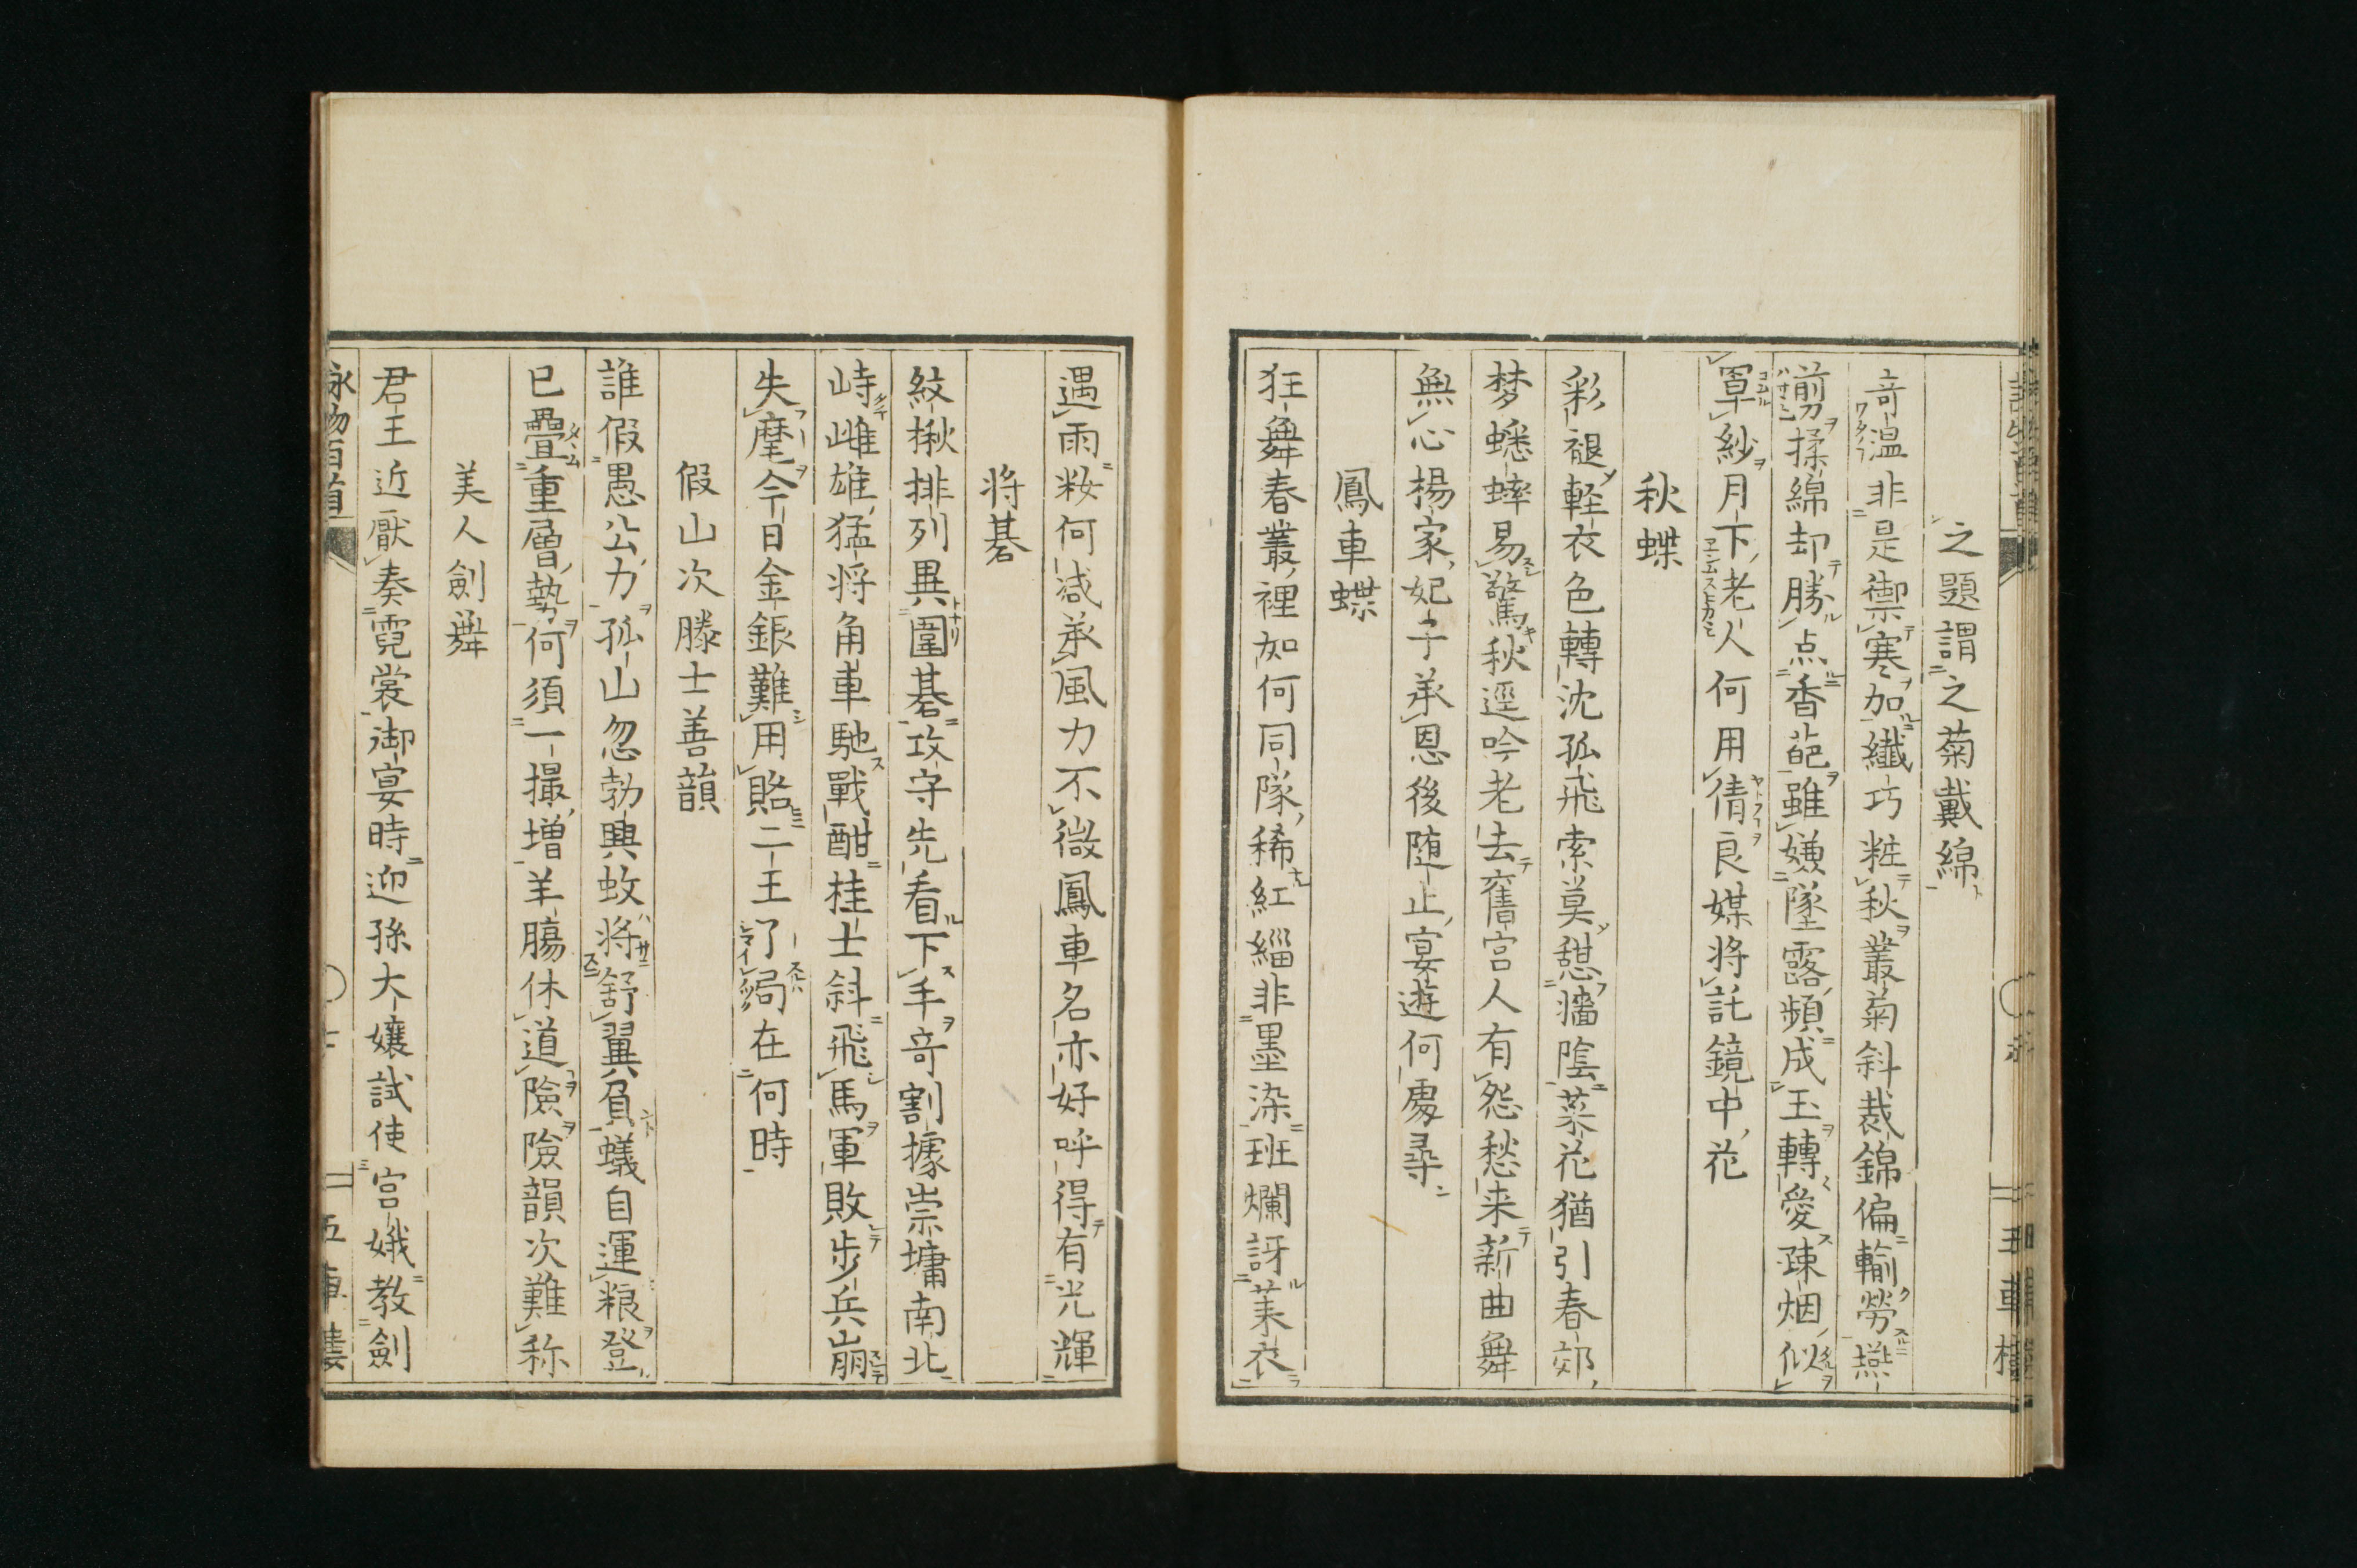 之題謂之菊戴綿
竒温非是禦寒加纎巧粧秋叢菊斜裁錦偏輸勞
剪揉綿却勝点香葩雖嫌墜露頻成玉轉愛疎烟似
罩紗月下老人何用倩良媒将託鏡中花
秋蝶
彩褪軽衣色轉沈孤飛索莫憇牆陰菜花猶引春郊
梦蟋蟀易驚秋逕吟老去舊宮人有怨愁来新曲舞
無心楊家妃子承恩後随止宴遊何處尋
鳳車蝶
狂舞春叢裡如何同隊稀紅緇非墨染班爛訝莱衣
遇雨籹何減承風力不微鳳車名亦好呼得有光輝
将棊
紋楸排列異圍碁攻守先看下手竒割據崇墉南北
峙雌雄猛将角車馳戰酣桂士斜飛馬軍敗歩兵崩
失麾今日金銀難用賂二王了局在何時
假山次滕士善韻
誰假愚公力孤山忽勃興蚊将舒翼負蟻自運粮登
已疊重層勢何須一撮増羊膓休道險險韻次難称
美人劍舞
君王近厭奏霓裳御宴時迎孫大嬢試使宮娥教劍
詠物百首
五車樓